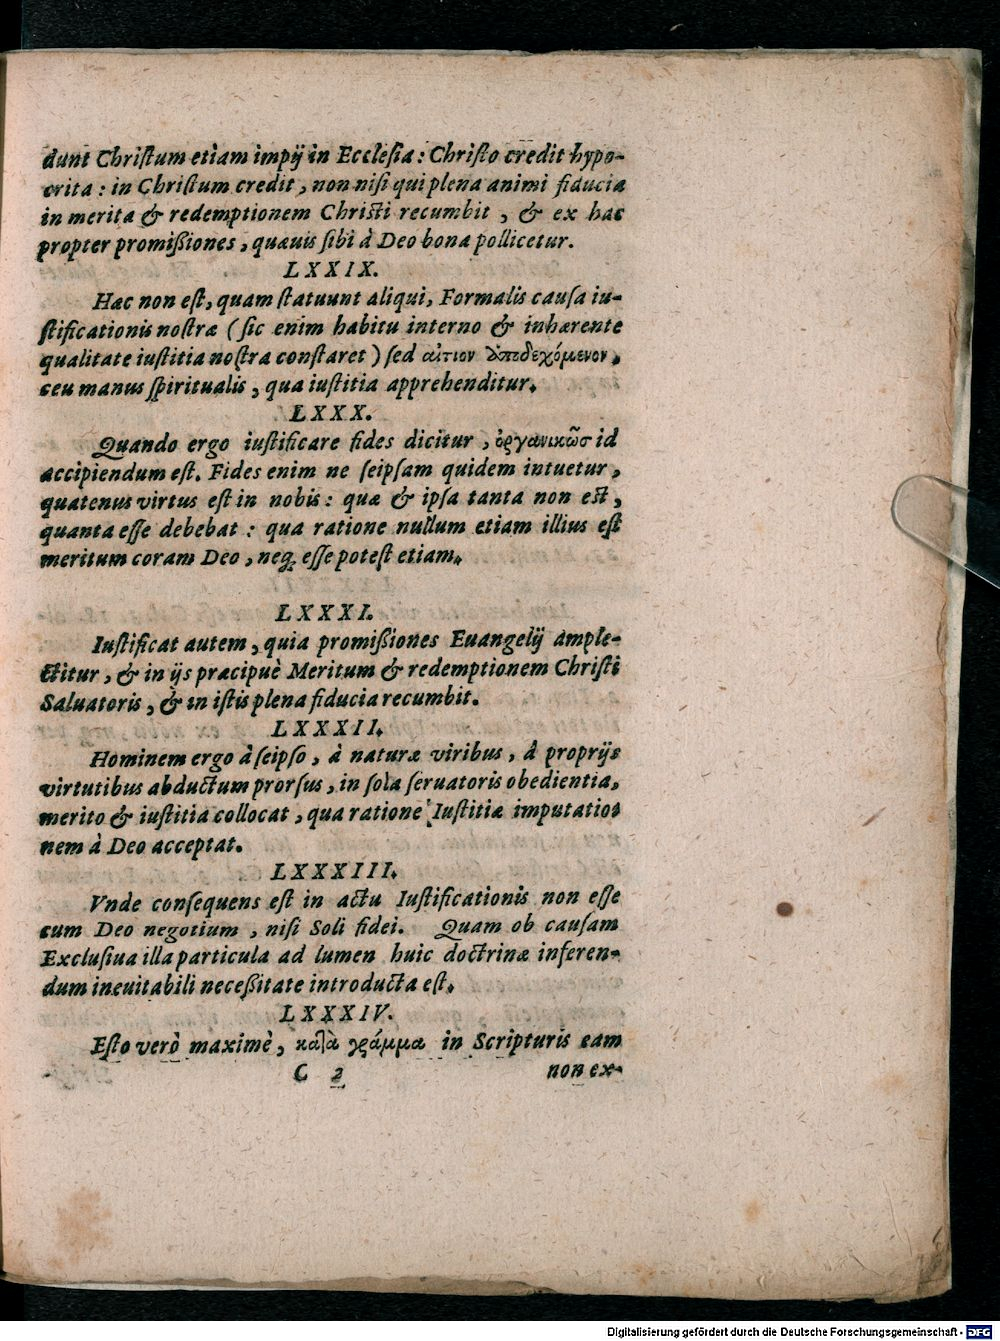 dunt Chriſtum etiam impij in Eccleſia: Chriſto credit hypo-
crita: in Chriſtum credit, non niſi qui plena animi fiducia
in merita & redemptionem Chriſti recumbit, & ex hac
propter promiſsiones, quæuis ſibi à Deo bona pollicetur.
LXXIX.
Hac non eſt, quam ſtatuunt aliqui, Formalis cauſa iu-
ſtificationis noſtræ (ſic enim habitu interno & inhærente
qualitate iuſtitia noſtra conſtaret) ſed αἴτιον ὑποδεχόμενον,
ceu manus ſpiritualis, qua iuſtitia apprehenditur.
LXXX.
Quando ergo iuſtificare fides dicitur, ὀργανικῶσ id
accipiendum eſt. Fides enim ne ſeipſam quidem intuetur,
quatenus virtus eſt in nobis: quæ & ipſa tanta non eſt,
quanta eſſe debebat: qua ratione nullum etiam illius eſt
meritum coram Deo, neq; eſſe poteſt etiam.
LXXXI.
Iuſtificat autem, quia promiſsiones Euangelijample-
ctitur, & in ijs præcipuè Meritum & redemptionem Chriſti
Saluatoris, & in iſtis plena fiducia recumbit.
LXXXII.
Hominem ergo à ſeipſo, à naturæ viribus, à proprijs
virtutibus abductum prorſus, in ſola ſeruatoris obedientia,
merito & iuſtitia collocat, qua ratione Iuſtitiæ imputatio-
nem à Deo acceptat.
LXXXIII.
Vnde conſequens eſt in actu Iuſtificationis non eſſe
cum Deo negotium, niſi Soli fidei. Quam ob cauſam
Excluſiua illa particula ad lumen huic doctrinæ inferen-
dum ineuitabili neceſsitate introducta eſt.
LXXXIV.
Eſto verò maximè, κατὰ γράμμα in Scripturis eam
C 2 non ex-
Digitalisierung gefördert durch die Deutsche Forschungsgemeinschaft - DFG